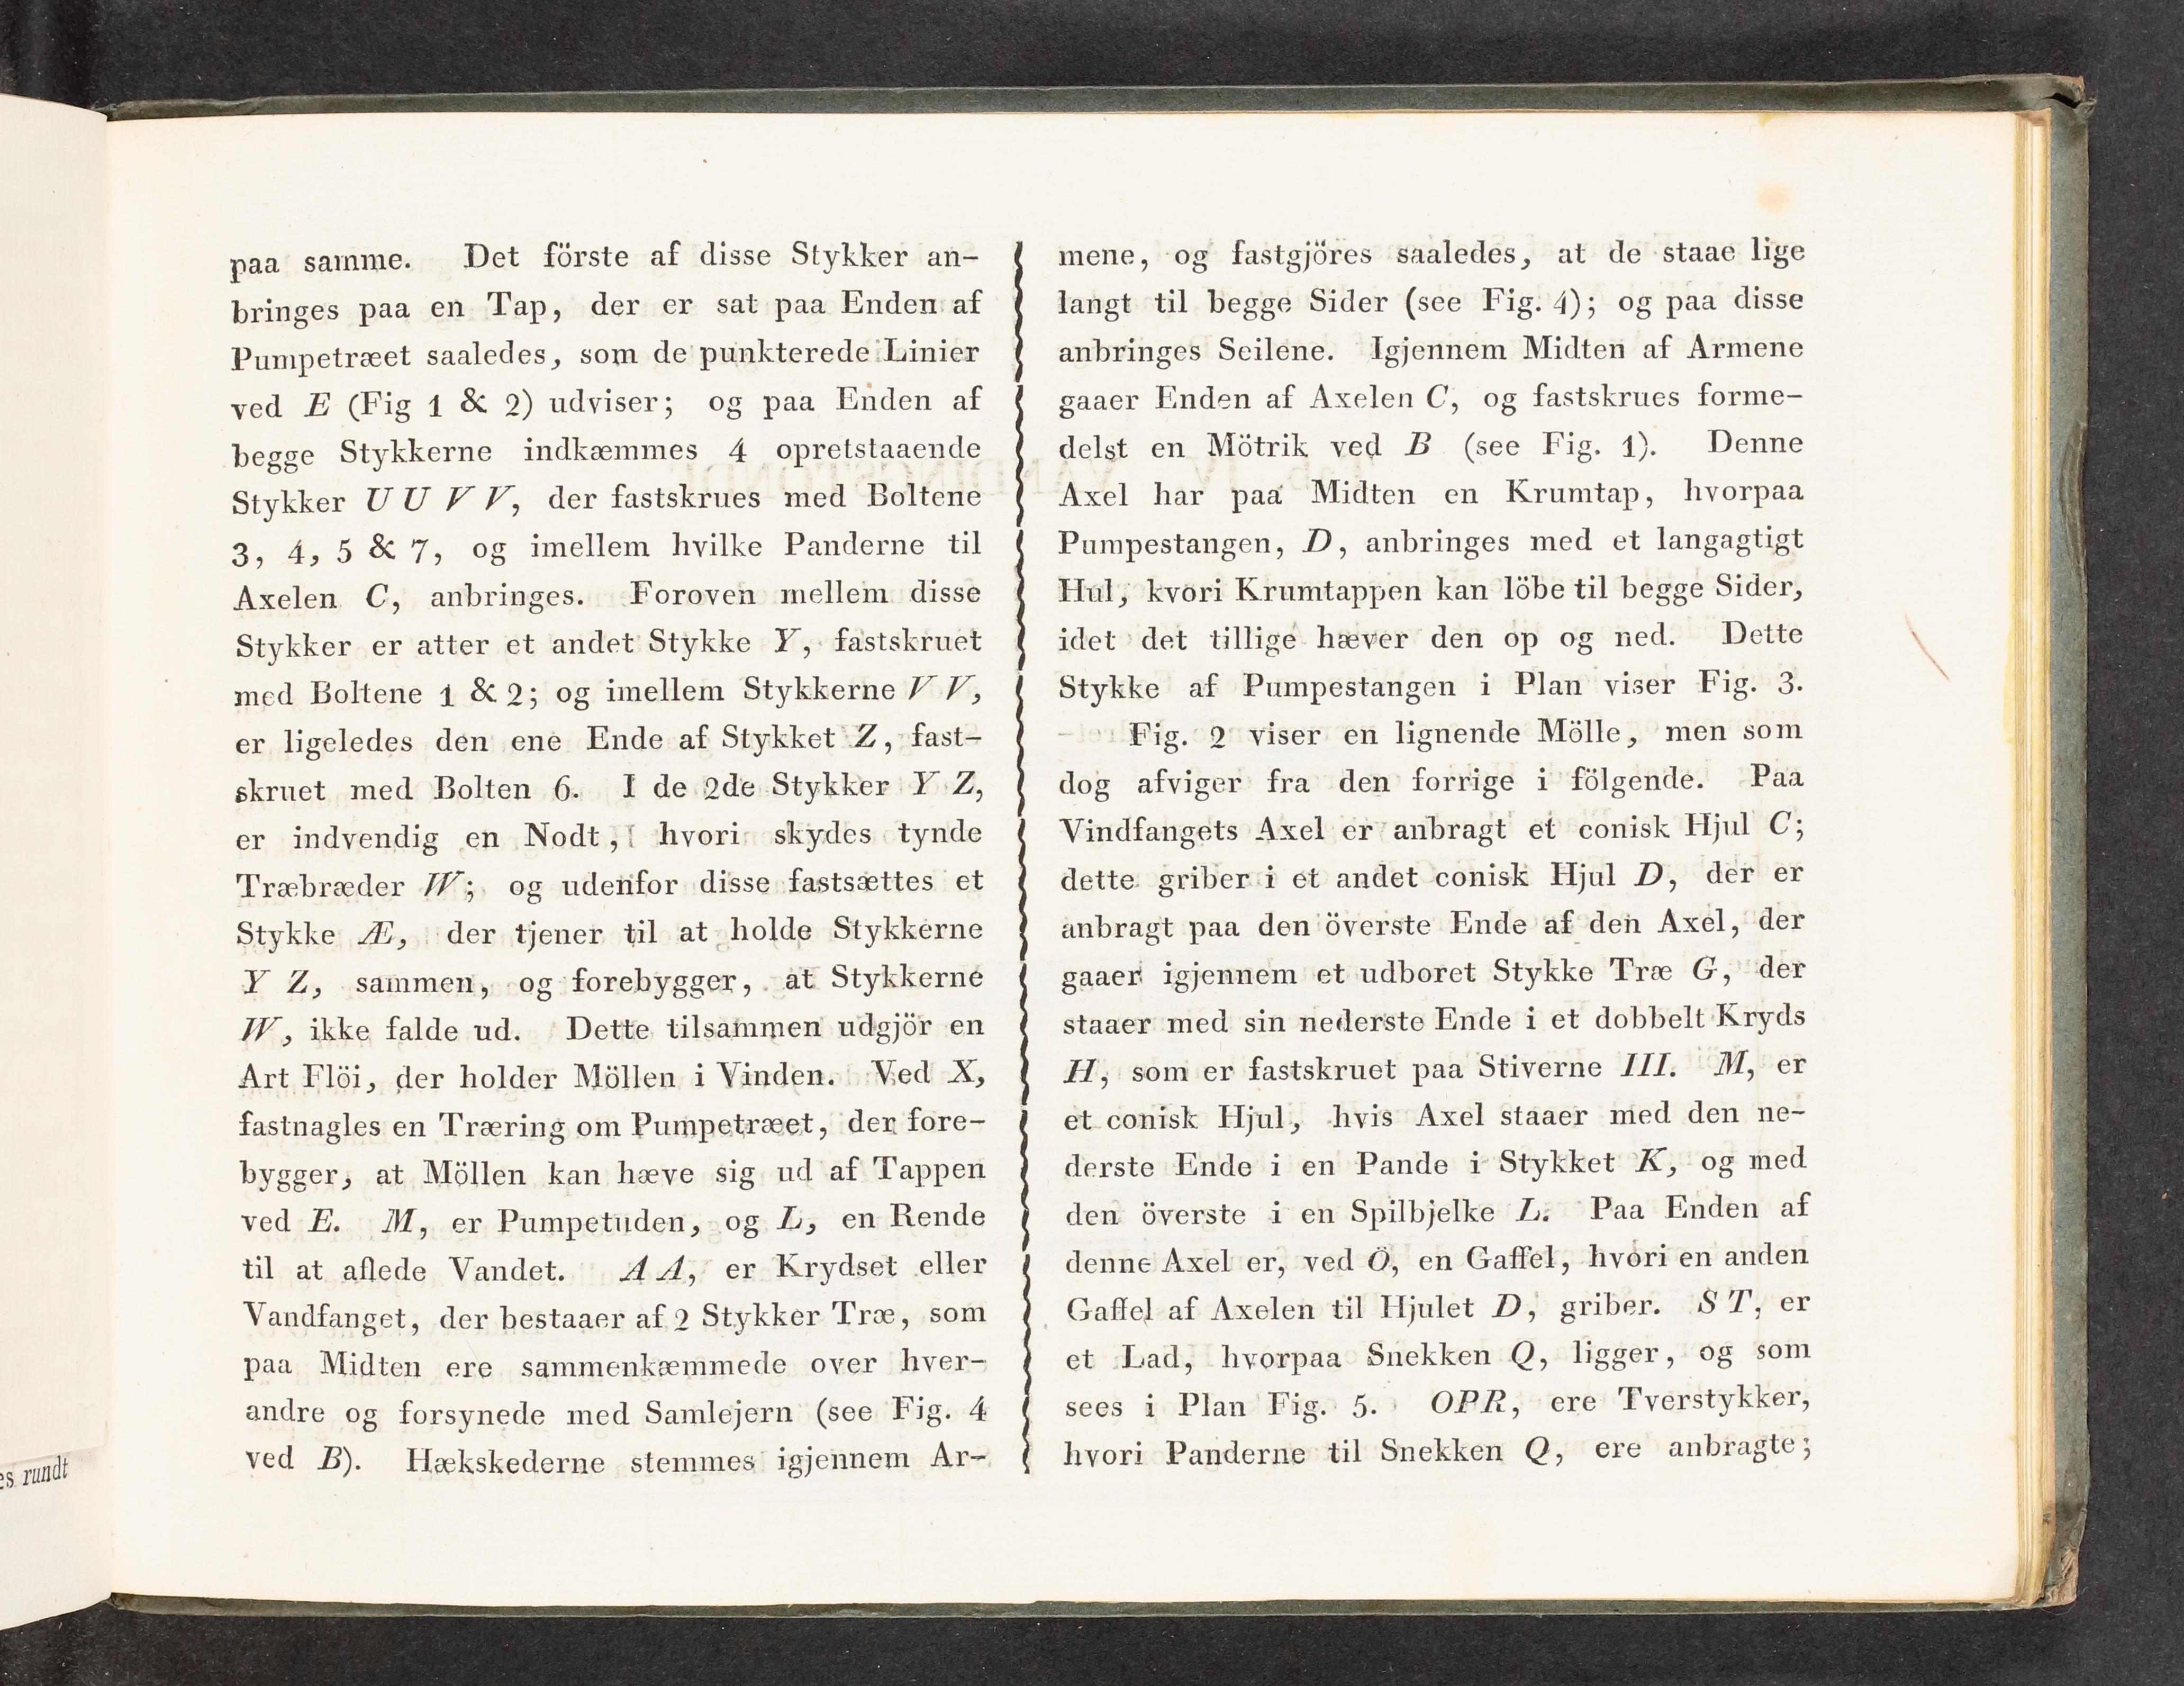 paa samme. Det förste af disse Stykker an-
bringes paa en Tap, der er sat paa Enden af
Pumpetræet saaledes, som de punkterede Linier
ved E (Fig 1 & 2) udviser; og paa Enden af
begge Stykkerne indkæmmes 4 opretstaaende
Stykker U U V V, der fastskrues med Boltene
3, 4, 5 & 7, og imellem hvilke Panderne til
Axelen C, anbringes. Foroven mellem disse
Stykker er atter et andet Stykke Y, fastskruet
med Boltene 1 & 2; og imellem Stykkerne V V,
er ligeledes den ene Ende af Stykket Z, fast-
skruet med Bolten 6. I de 2de Stykker Y Z,
er indvendig en Nodt, hvori skydes tynde
Træbræder W; og udenfor disse fastsættes et
Stykke Æ, der tjener til at holde Stykkerne
Y Z, sammen, og forebygger, at Stykkerne
W, ikke falde ud. Dette tilsammen udgjör en
Art Flöi, der holder Möllen i Vinden. Ved X,
fastnagles en Træring om Pumpetræet, der fore-
bygger, at Möllen kan hæve sig ud af Tappen
ved E. M, er Pumpetuden, og L, en Rende
til at aflede Vandet. A A, er Krydset eller
Vandfanget, der bestaaer af 2 Stykker Træ, som
paa Midten ere sammenkæmmede over hver-
andre og forsynede med Samlejern (see Fig. 4
ved B). Hækskederne stemmes igjennem Ar-
mene, og fastgjöres saaledes, at de staae lige
langt til begge Sider (see Fig. 4); og paa disse
anbringes Seilene. Igjennem Midten af Armene
gaaer Enden af Axelen C, og fastskrues forme-
delst en Mötrik ved B (see Fig. 1). Denne
Axel har paa Midten en Krumtap, hvorpaa
Pumpestangen, D, anbringes med et langagtigt
Hul, kvori Krumtappen kan löbe til begge Sider,
idet det tillige hæver den op og ned. Dette
Stykke af Pumpestangen i Plan viser Fig. 3.
Fig. 2 viser en lignende Mölle, men som
dog afviger fra den forrige i fölgende. Paa
Vindfangets Axel er anbragt et conisk Hjul C;
dette griber i et andet conisk Hjul D, der er
anbragt paa den överste Ende af den Axel, der
gaaer igjennem et udboret Stykke Træ G, der
staaer med sin nederste Ende i et dobbelt Kryds
H, som er fastskruet paa Stiverne III. M, er
et conisk Hjul, hvis Axel staaer med den ne-
derste Ende i en Pande i Stykket K, og med
den överste i en Spilbjelke L. Paa Enden af
denne Axel er, ved Ö, en Gaffel, hvori en anden
Gaffel af Axelen til Hjulet D, griber. S T, er
et Lad, hvorpaa Snekken Q, ligger, og som
sees i Plan Fig. 5. OPR, ere Tverstykker,
hvori Panderne til Snekken Q, ere anbragte;
es rundt